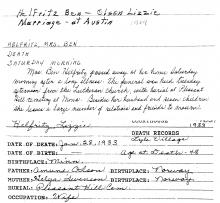 Helfritz Ben - Olson Lizzie
Marriage - at Austin
HELFRITZ, MRS. BEN
DEATH
SATURDAY MORNING
Mrs. Ben Helfritz passed away at her home Saturday
morning after a long illness. The funeral was held Tuesday
afternoon from the Lutheran church, with burial at Pleasant
Hill cemetery of Mona. Besides her husband and seven children
she leaves a large number of relatives and friends to mourn
Helfritz, Lizzie
1933
DEATH RECORDS
Lyle Village
DATE OF DEATH: Jan. 28, 1933
DATE OF BIRTH:
Age at Death - 48
BIRTHPLACE: Minn.
FATHER: Olson
BIRTHPLACE: Norway
MOTHER:
BIRTHPLACE: Norway
BURIAL: Pleasant Hill Cem.
OCCUPATION: Wife